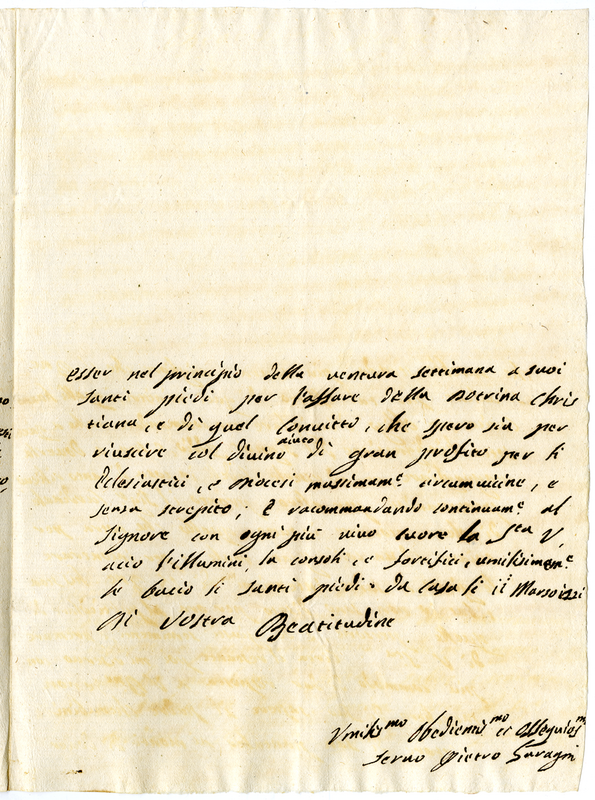 esser nel principio della ventura settimana a suoi
santi piedi per l'affare della Dotrina Chris
tiana, e di quel Convitto, che spero sia per
riuscire col divino aiuto di gran profito per li
Eclesiastici, e Diocesi massimam.e circumvicine, e
senza strepito; E racommandando continuam.e al
Signore con ogni più vivo cuore la S.ta V,
acciò l'illumini, la consoli, e fortifici, umilisimam.e
le bacio li santi piedi. da Casa li ii Marso
Di Vostra Beatitudine
Umilis.mo Obedientis.mo et Ossequios.mo
servo Pietro